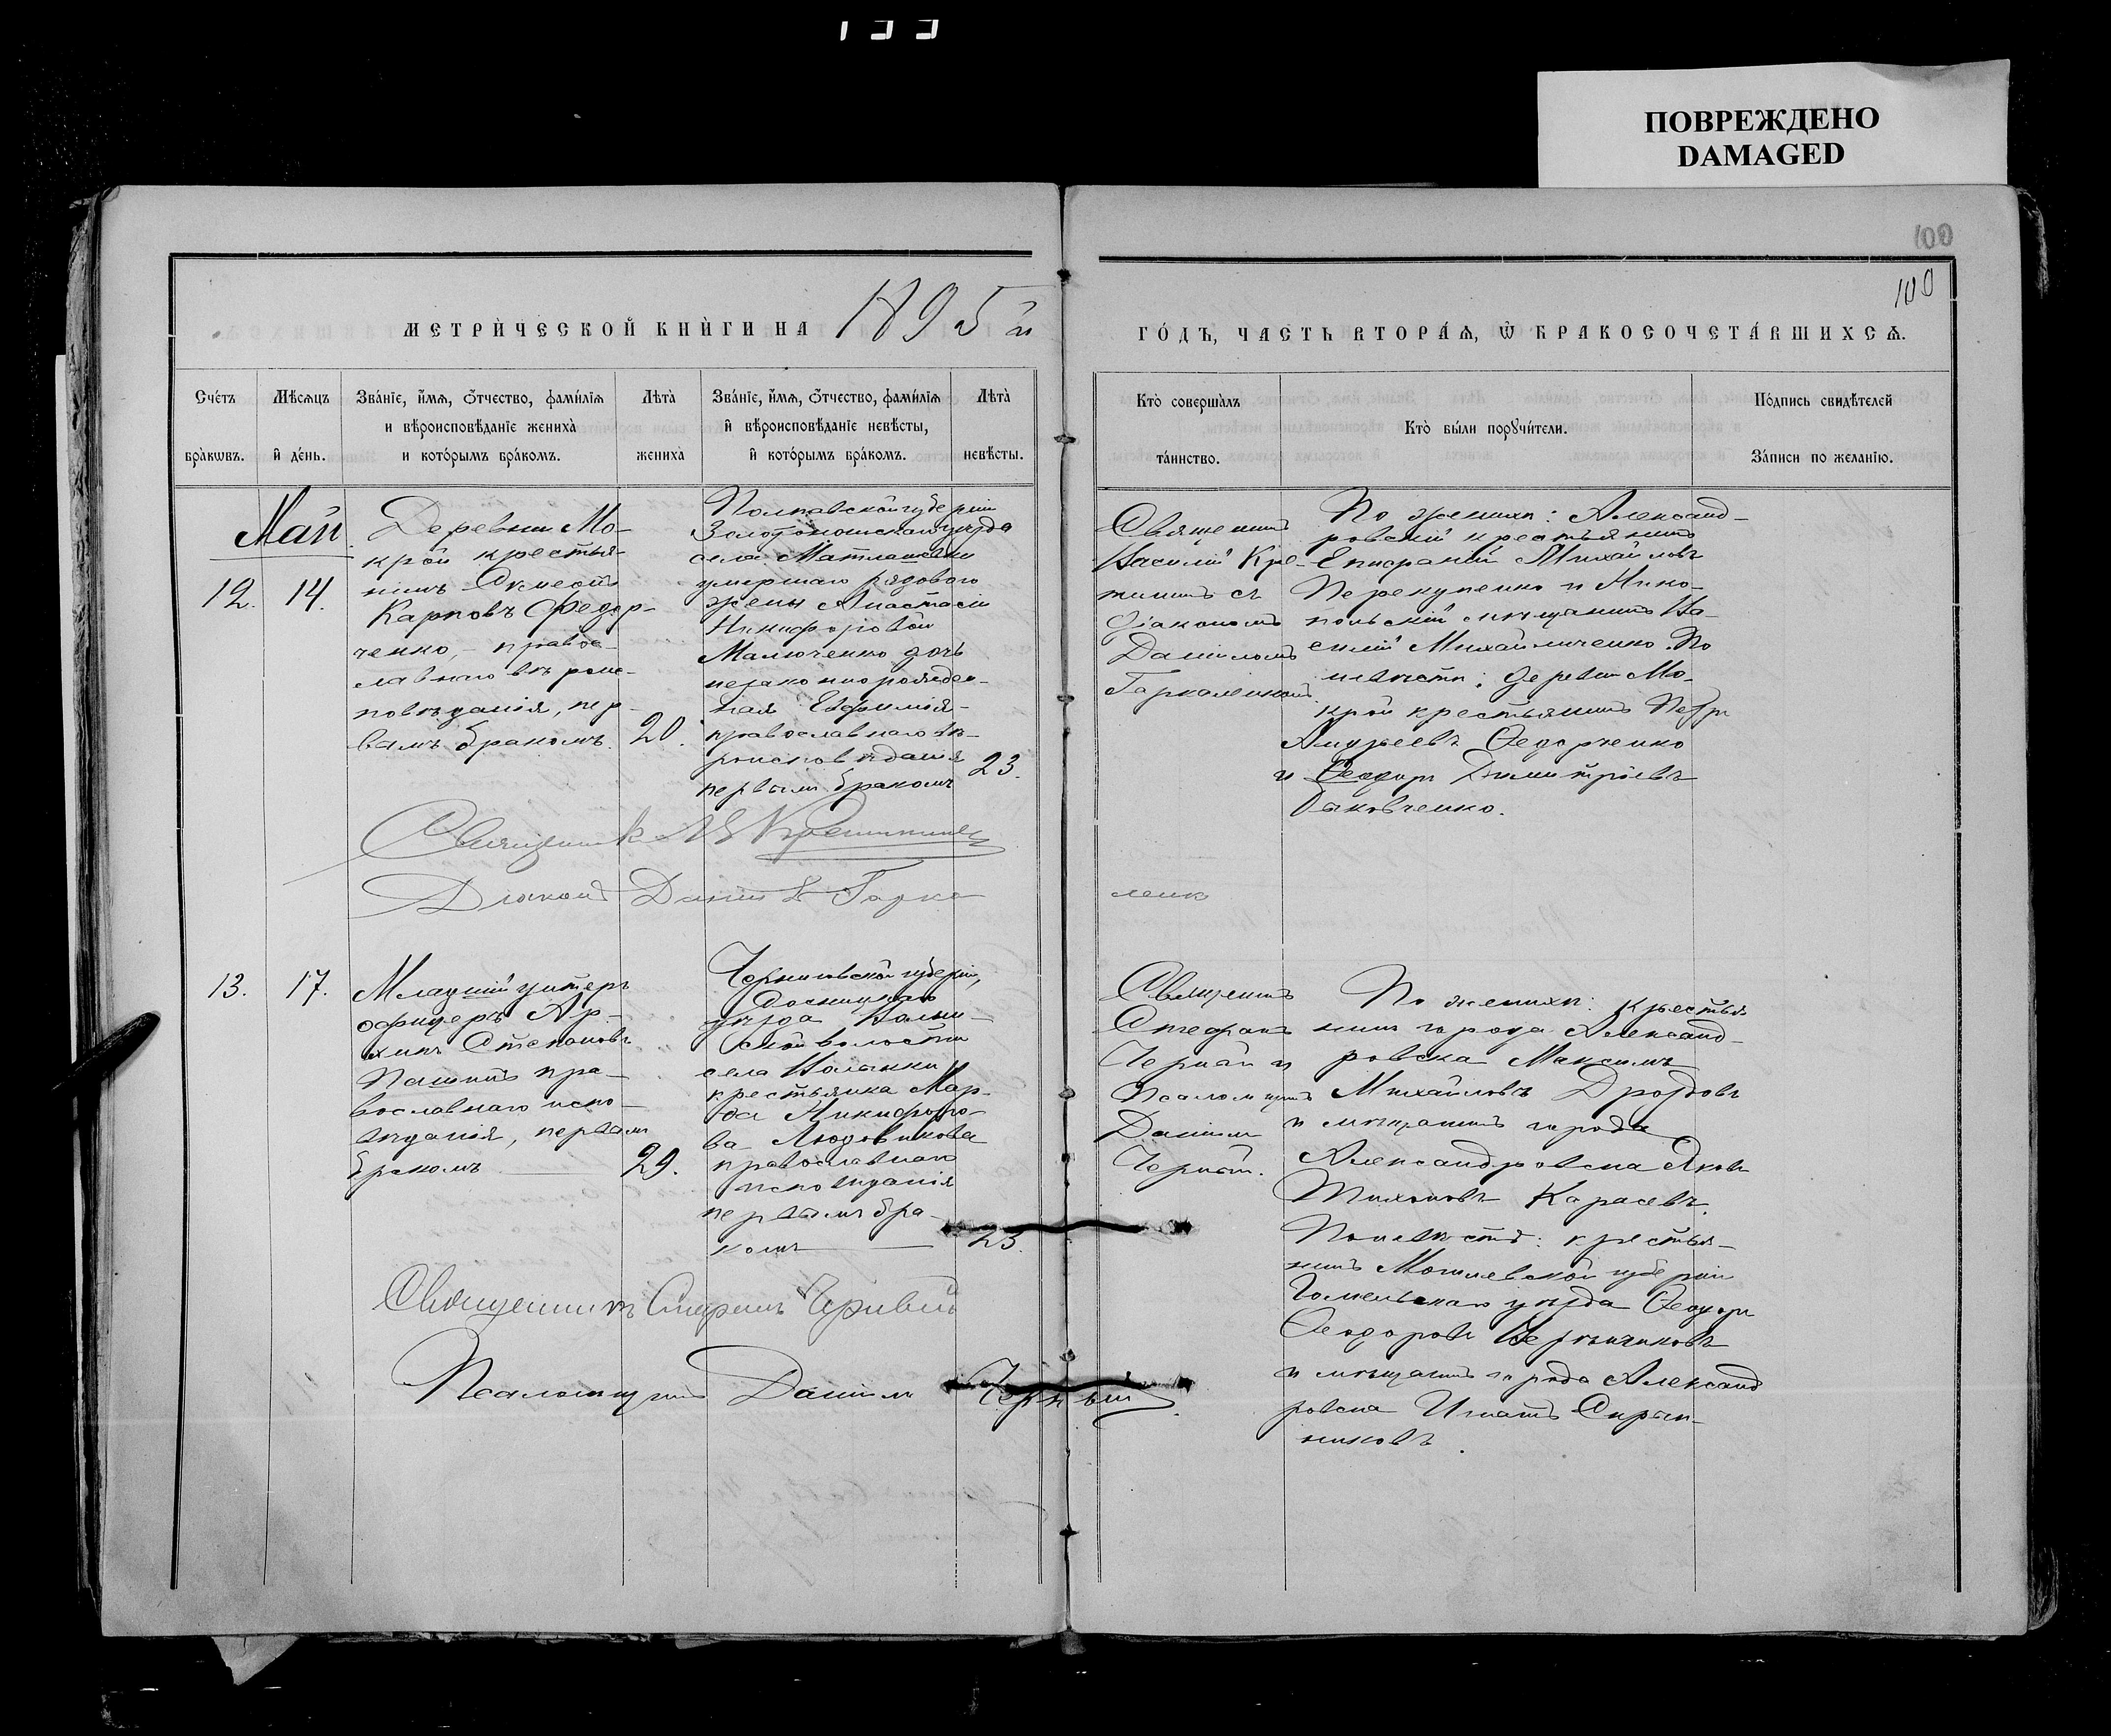 133
ПОВРЕЖДЕНО
DAMAGED
100
100
МЕТРИ́ЧЕСКОЙ КНИ́ГИ НА 1895 й
ГО́ДЪ, ЧАСТЬ ВТОРА́Я, Ѽ БРАКОСОЧЕТА́ВШИХСѦ.
Сче́тъ
бра́кѡвъ.
Мѣ́сѧцъ
и҆ де́нь.
Зва́нїе, и҆́мѧ, ѻ҆́тчество, фами́лїѧ
и вѣроисповѣ́данїе жениха̀
и кото́рымъ бра́комъ.
Лѣ́та̀
жениха̀
Зва́нїе, и҆́мѧ, ѻ҆́тчество, фами́лїѧ
и҆ вѣроисповѣ́данїе невѣ́сты,
и҆ кото́рымъ бра́комъ.
Лѣ́та̀
невѣ́сты.
Кто̀ соверша́лъ
та́инство.
Кто̀ бы́ли порꙋчи́тели.
По́дпись свидѣ́телей
За́писи по жела́нїю.
Май.
12.
14.
Деревни Мо-
крой крестья-
нинъ
Карповъ Федор-
ченко, - правос-
лавнаго вѣроис-
повѣданія, пер-
вымъ бракомъ.
20.
Полтавской губерніи
Золотоношскаго уѣзда
села
умершаго рядового
жены Анастасіи
Никифоровой
Малюченко дочь
незаконнорожден-
ная Евфимія -
православнаго вѣ-
роисповѣданія
первымъ бракомъ
23.
Священникъ
Василій Кре-
съ
діакономъ
Даніиломъ
Гаркаленкой
По женихѣ: Александ-
ровскій крестьянинъ
Епифаній Михайловъ
Перекупенко и Нико-
польскій мѣщанинъ Ва-
силій Михайличенко. По
невѣстѣ: деревни Мо-
крой крестьянинъ Петръ
Андреевъ Федорченко
и Феодоръ Димитріевъ
Быковченко.
Священникъ В
Діаконъ Даніилъ Гарка
ленко
13.
17.
Младшій унтеръ
офицеръ Ар-
хипъ Степановъ
пра-
вославнаго испо-
вѣданія, первымъ
бракомъ
29.
Черниговской губерніи,
уѣзда
ской волости
села
крестьянка Мар-
фа Никифоро-
ва
православнаго
исповѣданія
первымъ бра-
комъ
23.
Священникъ
Стефанъ
Черный и
Псаломщикъ
Даніилъ
Черный.
По женихѣ: крестья
нинъ города Александ-
ровска Максимъ
Михайловъ Дроздовъ
и мѣщанинъ города
Александровска Яковъ
Тихоновъ Карасевъ.
По невѣстѣ: крестья-
нинъ Могилевской губерніи
Гомельскаго уѣзда Феодоръ
Феодоровъ
и мѣщанинъ города Александ
ровска Игнатъ Скрын-
никовъ.
Священникъ Стефанъ Черный
Псаломщикъ Даніилъ Черный